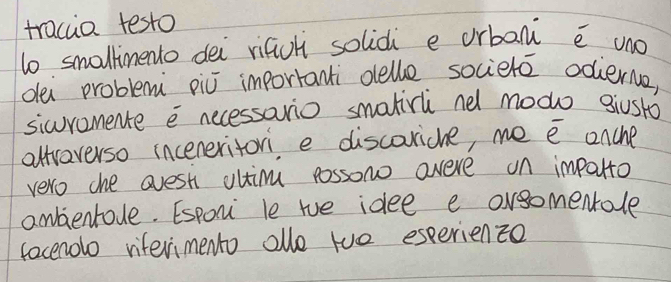 traccia testo
lo smaltimento dei rifiuti solidi e urbani è uno
dei problemi più importanti della società odierna,
sicuramente è necessario smaltirli nel modo giusto
attraverso inceneritori e discariche, ma è anche
vero che questi ultimi possono avere un impatto
ambientale. Esponi le tue idee e argomentale
facendo riferimento alla tua esperienza